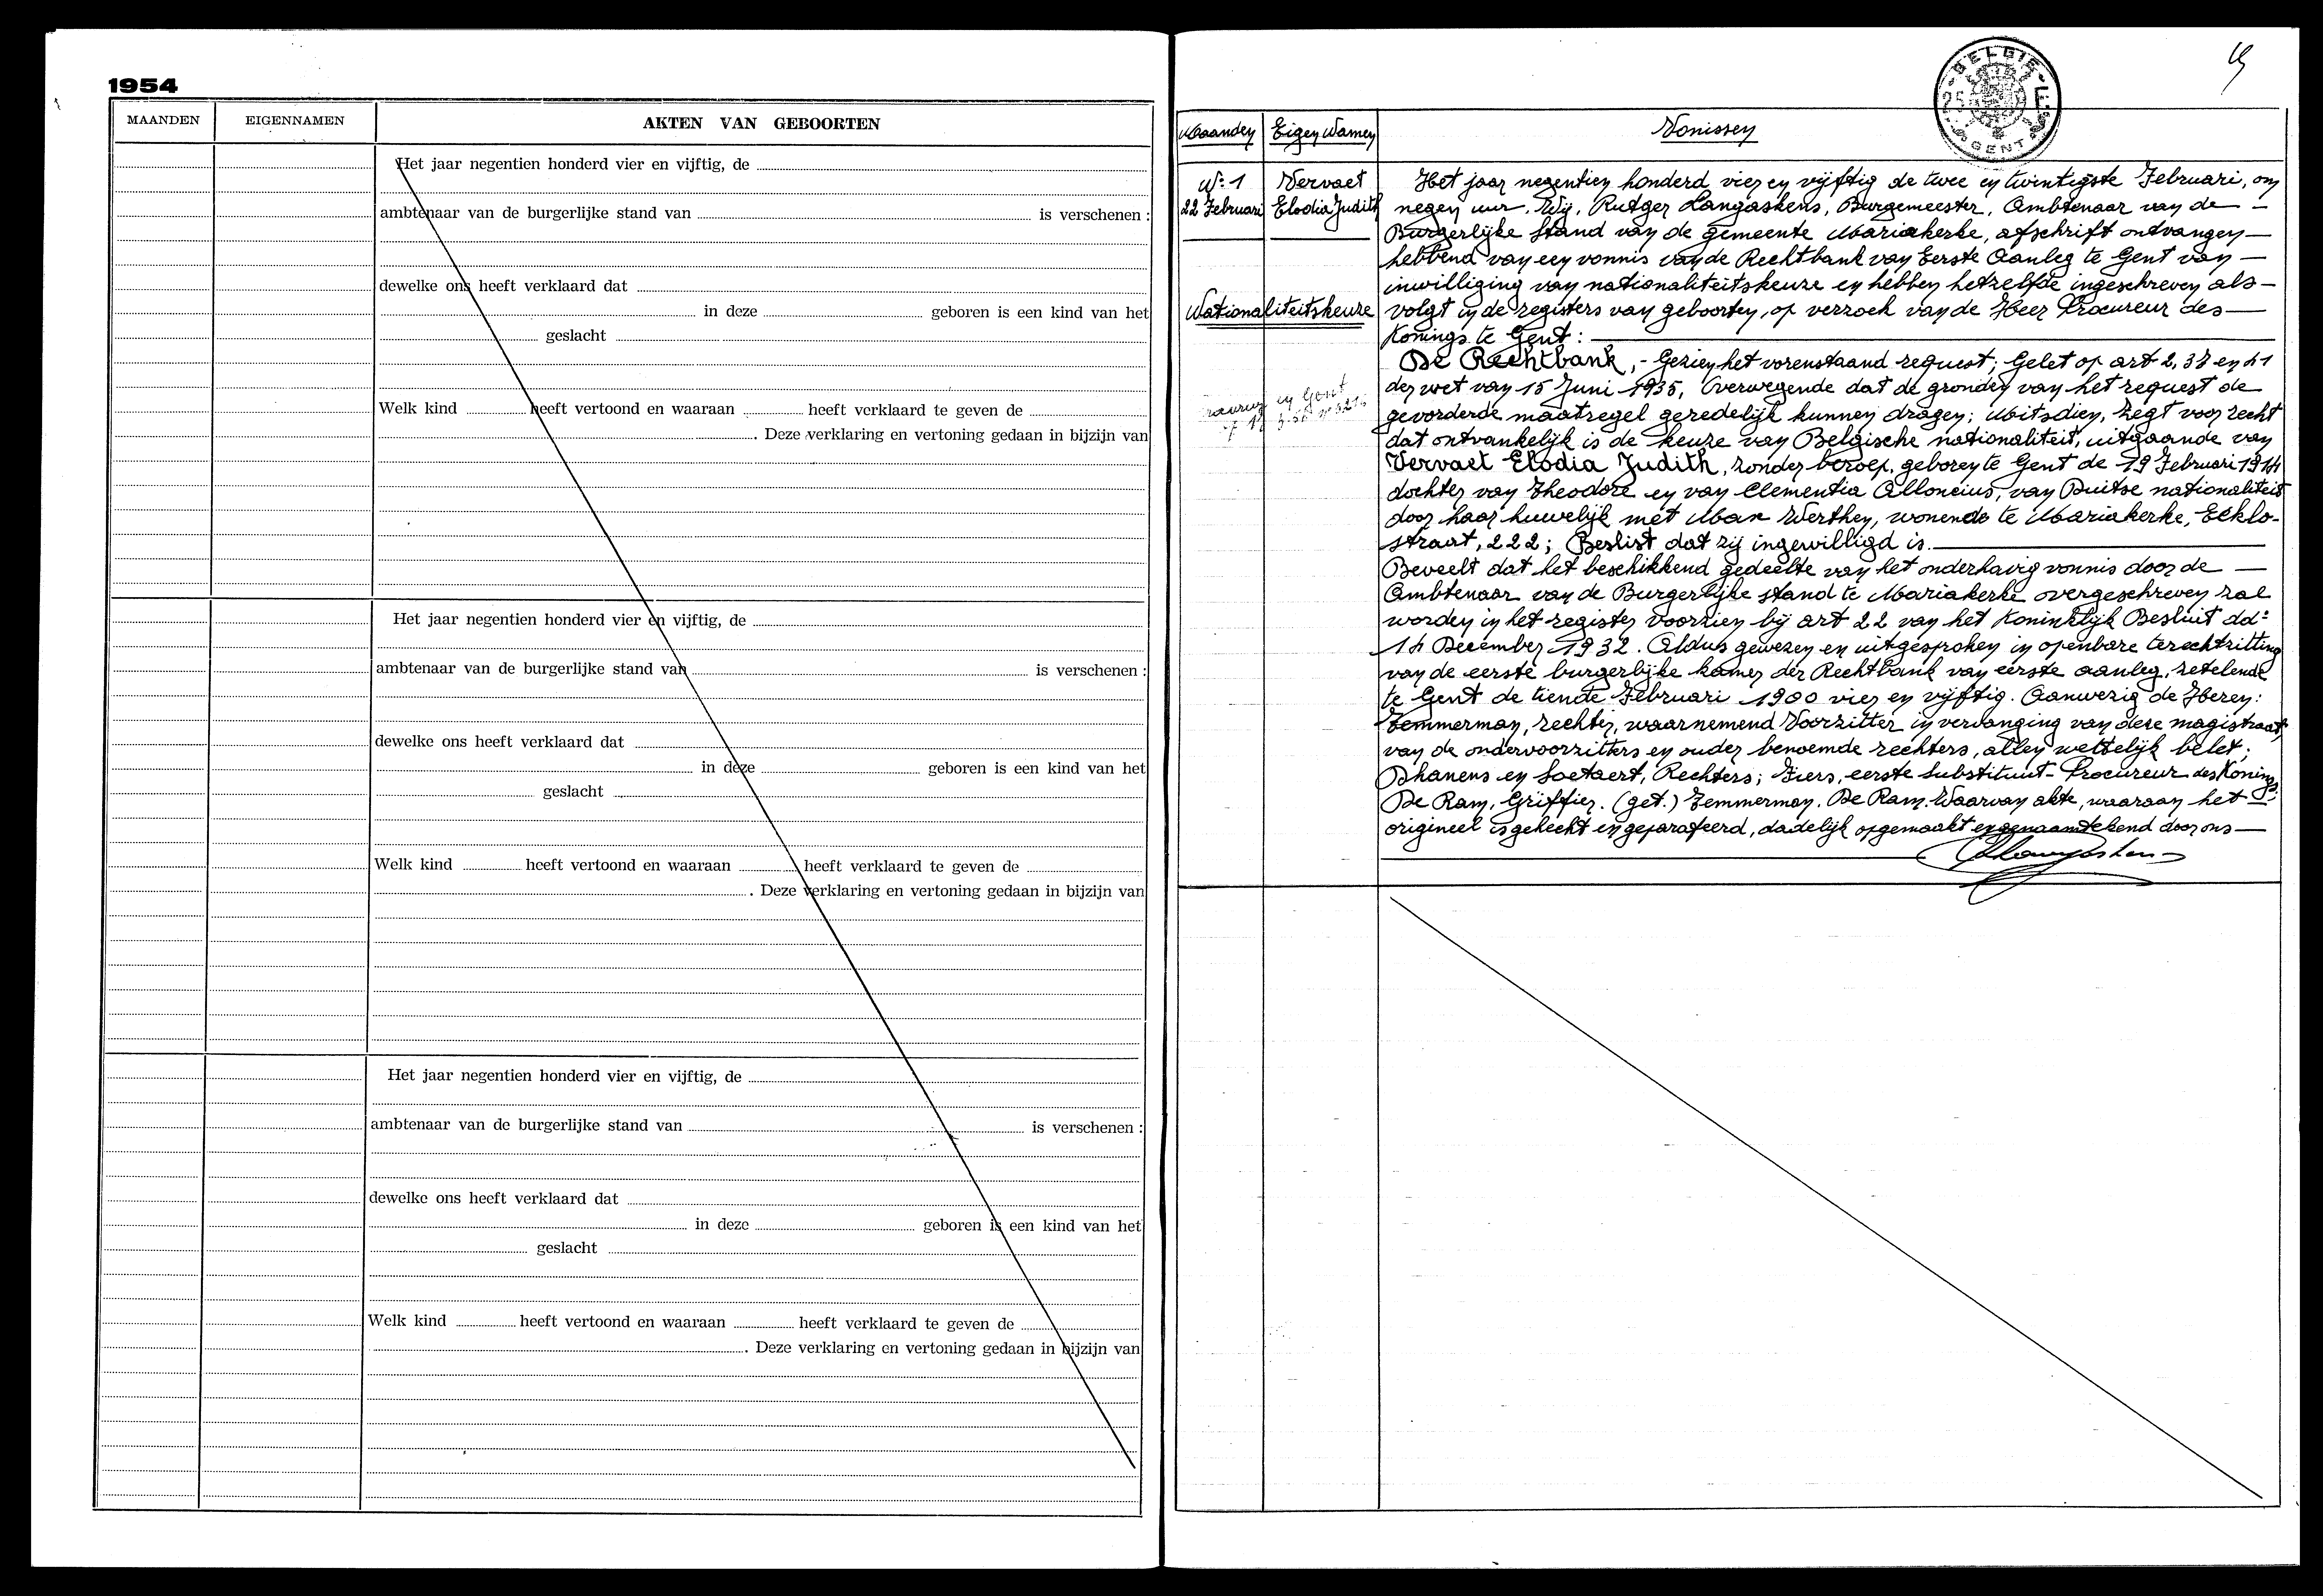 1954
MAANDEN EIGENNAMEN AKTEN VAN GEBOORTEN
Het jaar negentien honderd vier en vijftig, de
ambtenaar van de burgerlijke stand van is verschenen :
dewelke ons heeft verklaard dat
in deze geboren is een kind van het
geslacht
Welk kind heeft vertoond en waaraan heeft verklaard te geven de
. Deze verklaring en vertoning gedaan in bijzijn van
Het jaar negentien honderd vier en vijftig, de
ambtenaar van de burgerlijke stand van is verschenen :
dewelke ons heeft verklaard dat
in deze geboren is een kind van het
geslacht
Welk kind heeft vertoond en waaraan heeft verklaard te geven de
. Deze verklaring en vertoning gedaan in bijzijn van
Het jaar negentien honderd vier en vijftig, de
ambtenaar van de burgerlijke stand van is verschenen :
dewelke ons heeft verklaard dat
in deze geboren is een kind van het
geslacht
Welk kind heeft vertoond en waaraan heeft verklaard te geven de
. Deze verklaring en vertoning gedaan in bijzijn van
BELGIE
GENT
Maanden Eigen Namen Vonissen
N° 1 Vervaet
22 Februari Elodia Judith
Nationaliteitskeuze
Het jaar negentien honderd vier en vijftig de twee en twintigste Februari, om
negen uur, Wij, Rutger Langaskens, Burgemeester, Ambtenaar van de
Burgerlijke Stand van de gemeente Mariakerke, afschrift ontvangen
hebbend van een vonnis van de Rechtbank van Eerste Aanleg te Gent van
inwilliging van nationaliteitskeuze en hebben hetzelfde ingeschreven als
volgt in de registers van geboorten, op verzoek van de Heer Procureur des
Konings te Gent :
De Rechtbank, - Gezien het vorenstaand request; Gelet op art 2, 38 en 41
der wet van 15 Juni 1935, Overwegende dat de gronden van het request de
gevorderde maatregel geredelijk kunnen dragen; Mitsdien, zegt voor recht
dat ontvankelijk is de keuze van Belgische nationaliteit, uitgaande van
Vervaet Elodia Judith, zonder beroep, geboren te Gent de 19 Februari 1914
dochter van Theodore en van Clementia Alloncius, van Duitse nationaliteit
door haar huwelijk met Max Werthen, wonende te Mariakerke, Eeklo-
straat, 222; Beslist dat zij ingewilligd is.
Beveelt dat het beschikkend gedeelte van het onderhavig vonnis door de
Ambtenaar van de Burgerlijke stand te Mariakerke overgeschreven zal
worden in het register voorzien bij art 22 van het Koninklijk Besluit dd°
14 December 1932. Aldus gewezen en uitgesproken in openbare terechtzitting
van de eerste burgerlijke kamer der Rechtbank van eerste aanleg, zetelende
te Gent de tiende Februari 1900 vier en vijftig. Aanwezig de Heren:
Temmerman, rechter, waarnemend Voorzitter in vervanging van deze magistraat,
van de ondervoorzitters en ouder benoemde rechters, allen wettelijk belet;
Dhanens en Soetaert, Rechters; Ziers, eerste Substituut-Procureur des Konings
De Ram, Griffier. (get.) Temmerman. De Ram. Waarvan akte, waaraan het
origineel is gehecht en geparafeerd, dadelijk opgemaakt en genaamtekend door ons